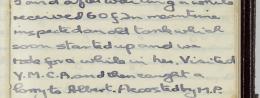 received 60 f. In meantime
inspected an old tank which
soon started up and we
rode for a while in her. Visited
Y.M.C.A. and then caught a
lorry to Albert. Accosted by M.P.